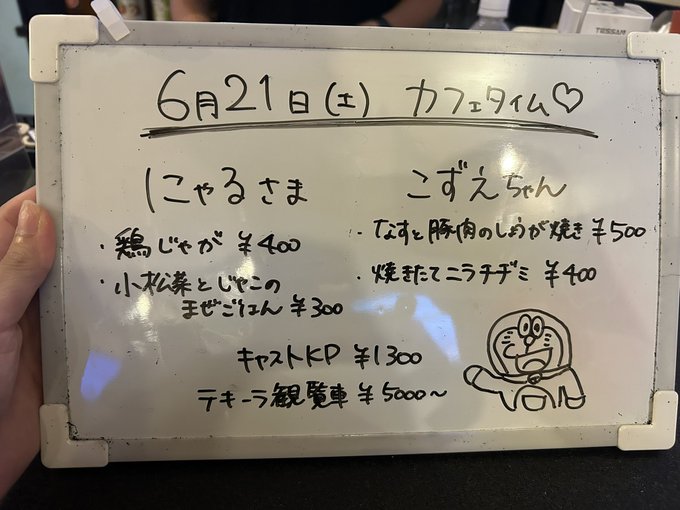 TESSAN
6月21日(土) カフェタイム♡
にゃるさま
・鶏じゃが ¥400
・小松菜とじゃこの
まぜごはん ¥300
こずえちゃん
・なすと豚肉のしょうが焼き ¥500
・焼きたてニラチヂミ ¥400
キャストKP ¥1300
テキーラ観覧車 ¥5000〜